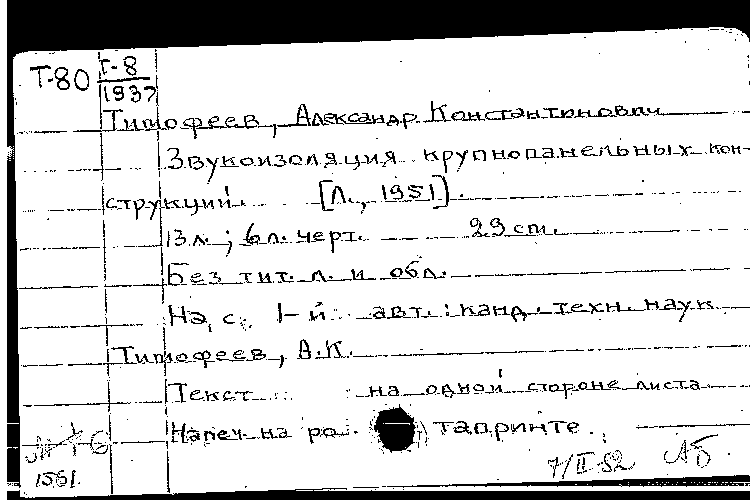 Т-80 Т-8
1937
Тимофеев, Александр Константинович
Звукоизоляция крупнопанельных кон-
струкций. [Л., 1951].
13 л.; 6 л. черт. 29 cm.
Без тит. л. и обл.
На с. 1-й: авт.: канд. техн. наук
Тимофеев, А.К.
Текст на одной стороне листа
Напеч. на ро тапринте.
7/II 52 АБ.